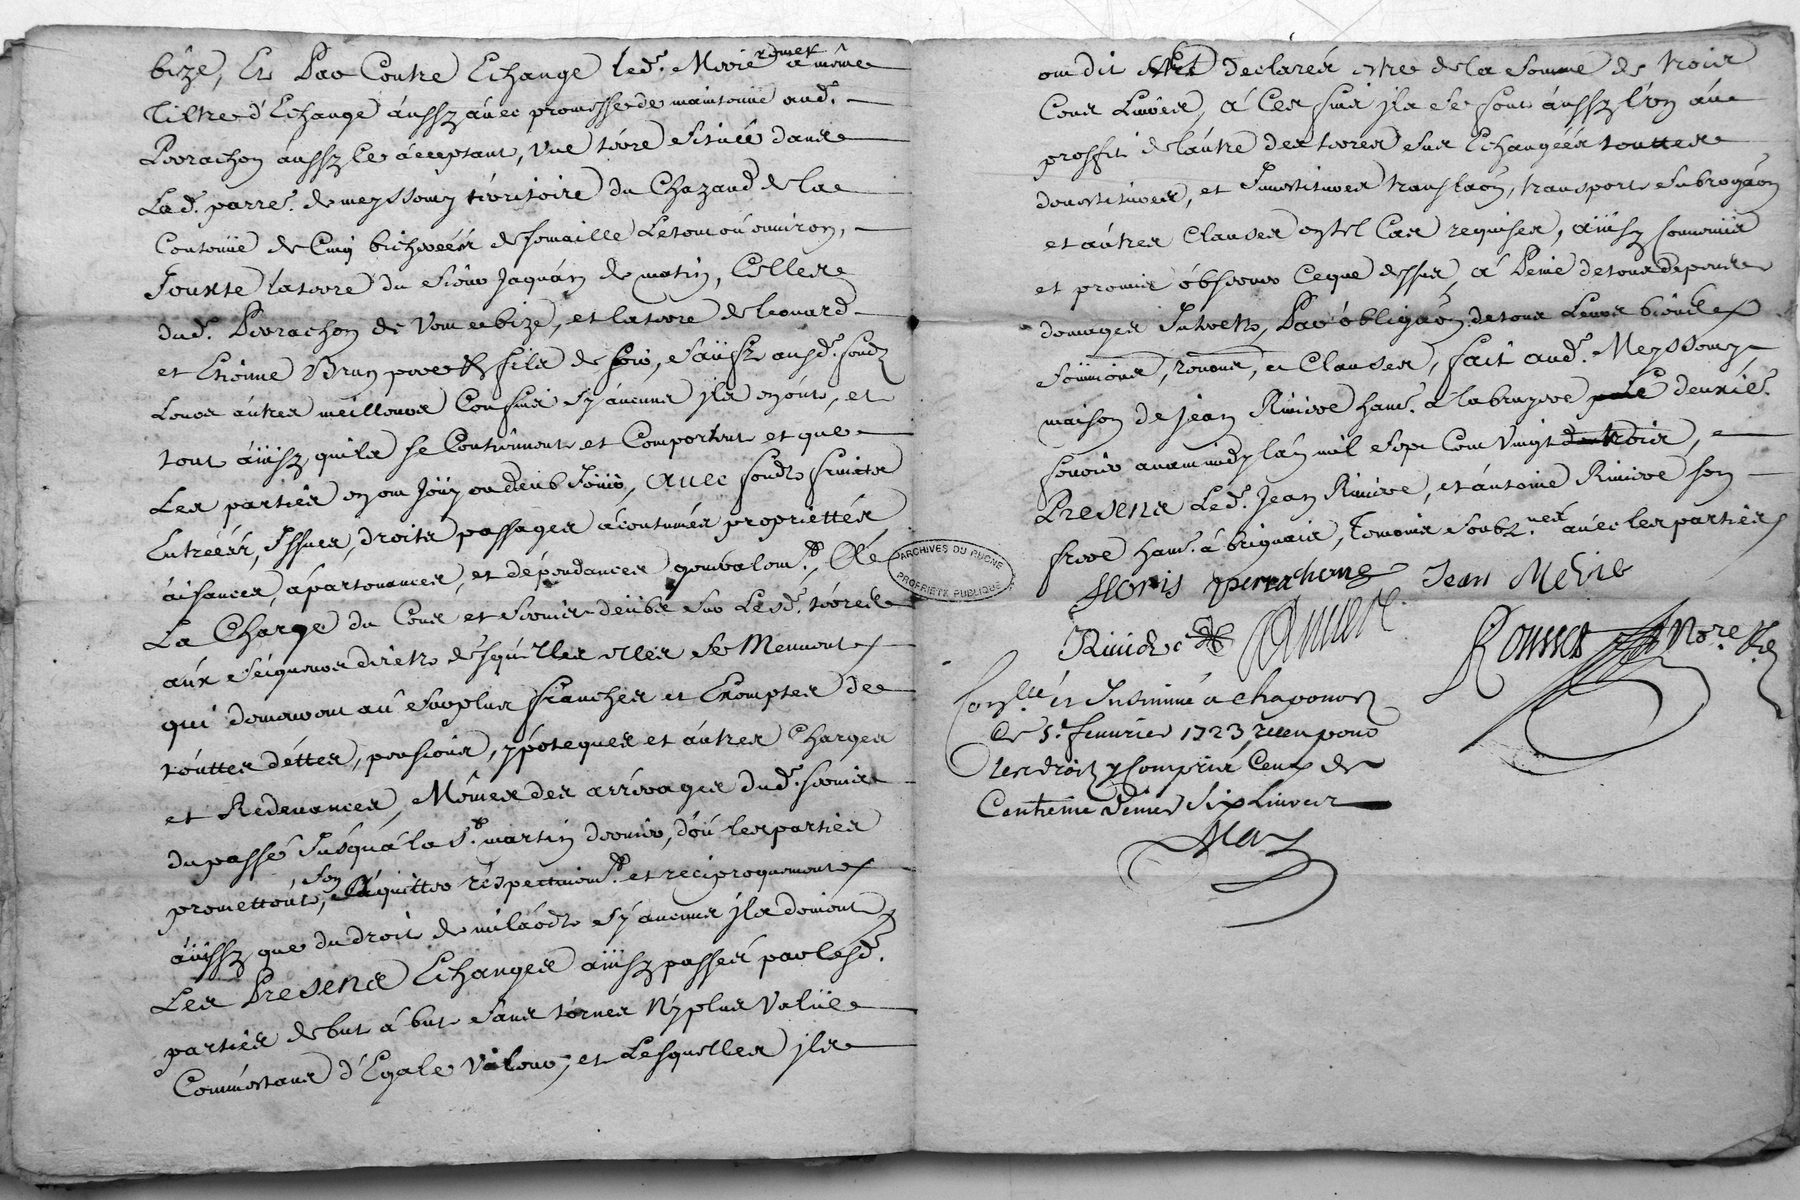 bize, Et Par Contre Echange led. Merie remet a même
Tiltre d'Echange aussy avec promesse de maintenüe aud.
Perrachon aussy ce acceptant, Une terre Scituée dans
Lad. parre. de meyssemy térritoire du Chazaud de la
Contenüe de Cinq bicherées de semaille Le tout ou environ,
Jouxte la terre du Sieur Jaquan de matin, Celle
dud. Perrachon de Vent et bize, et la terre de Leonard
et Etienne Brun pere et fils de soir, sauf ausd. fondz
Leurs autres meilleurs Confins Sy aucuns ils en ont, et
tout ainsy qu'ils se Contiennent et Comportent et que
Les parties en ont Joüy ou deub Joüir, avec fondz fruicts
Entrées, Issues, droits passages acoutumés proprietés
aisances, apartenances, et dépendances generalemt., A
La Charge du Cens et Servis deübs Sur Lesd. terres
aux Seigneurs directs desquelles elles se Meuvent
qui demeurent au Surplus franches et Exemptes de
touttes dettes, pensions, ypoteques et autres Charges
et Redevances, Mêmes des arrérages dud. servis
du passé Jusqu'à la St. martin dernier, d'où les parties
promettent, s'en acquitter respectivemt. et reciproquement
aussy que du droit de milaods sy aucuns ils doivent
Les Presens Echanges ainsy passés par lesd.
parties de but à but Sans tornes Ny plus Valüe
Comme estans d'Egale Valeur, et Lesquelles ils
ont dit et declarés etre de la Somme de trois
Cens Livres, à Ces fins ils se sont aussy l'un au
proffit de l'autre des terres Sus Echangéés touttes
devestitures, et Investitures translaon, transport Subrogaon
et autres Clauses en tel Cas requises, ainsy Convenu
et promis observer Ceque dessus, à Peine de tous depens
domages Interets, Par obligaon de tous Leurs biens
Soumions, renons, et Clauses, fait aud. Meyssemy
maison de Jean Riviere hant. à la bruyere deuxie.
fevrier avant midy l'an mil Sept Cent Vingt trois,
Presens Led. Jean Riviere, et antoine Riviere son
frere hant. à brignais, temoins Soubz.nés avec les parties
floris perrachong Jean Merie
Riviere Riviere
Rousset Nore. Ral
Conlle. et Insinüé a chaponost
le 5e. fevrier 1723 receu pour
les droits y compris Ceux de
Centieme denier Six Livres
May
ARCHIVES DU RHONE
PROPRIÉTÉ PUBLIQUE